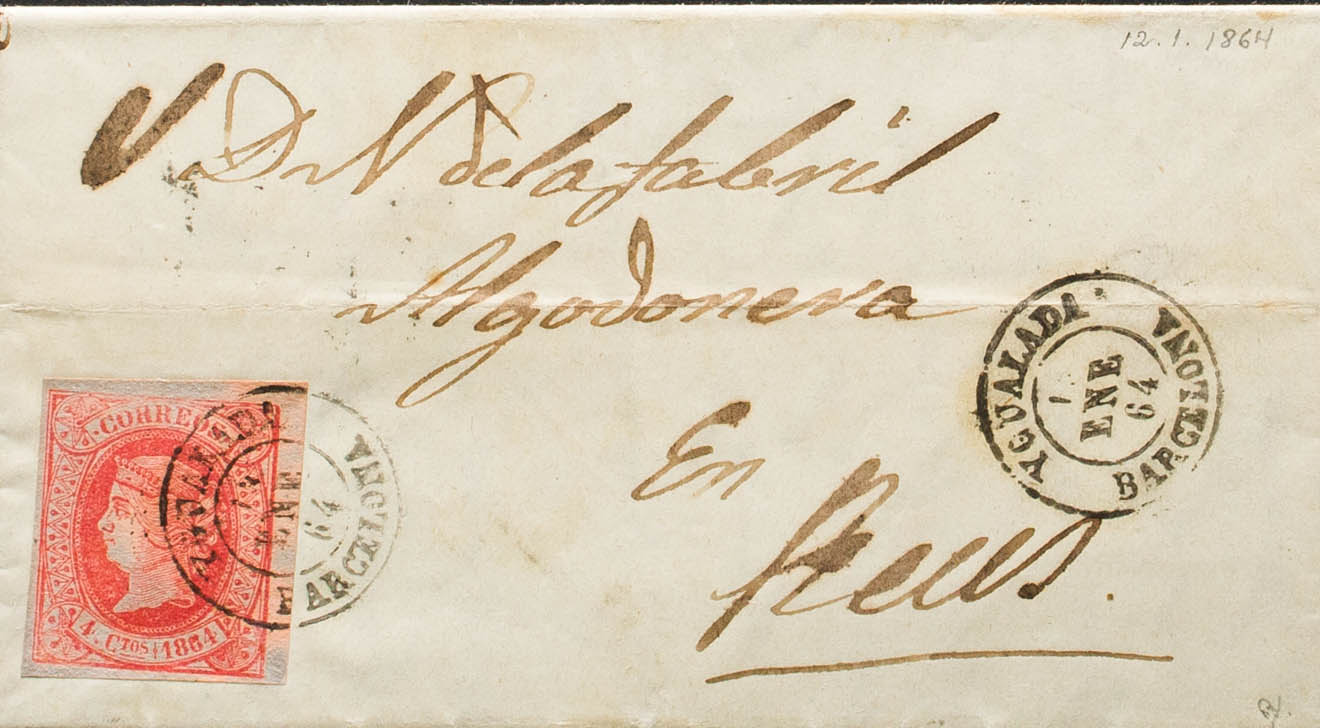 12.1.1864
S D r N de la fabril
Algodonera
En
Reus.
YGUALADA
1 ENE 64
BARCELONA
CORREOS
4 CTOS 1864
YGUALADA
ENE
64
BARCELONA